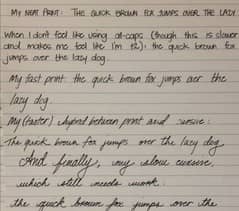 MY NEAT PRINT: THE QUICK BROWN FOX JUMPS OVER THE LAZY
When I don't feel like using all-caps (though this is slower
and makes me feel like I'm 12): the quick brown fox
jumps over the lazy dog.
My fast print: the quick brown fox jumps over the
lazy dog.
My (faster) hybrid between print and cursive:
The quick brown fox jumps over the lazy dog
And finally, my slow cursive,
which still needs work:
the quick brown fox jumps over the